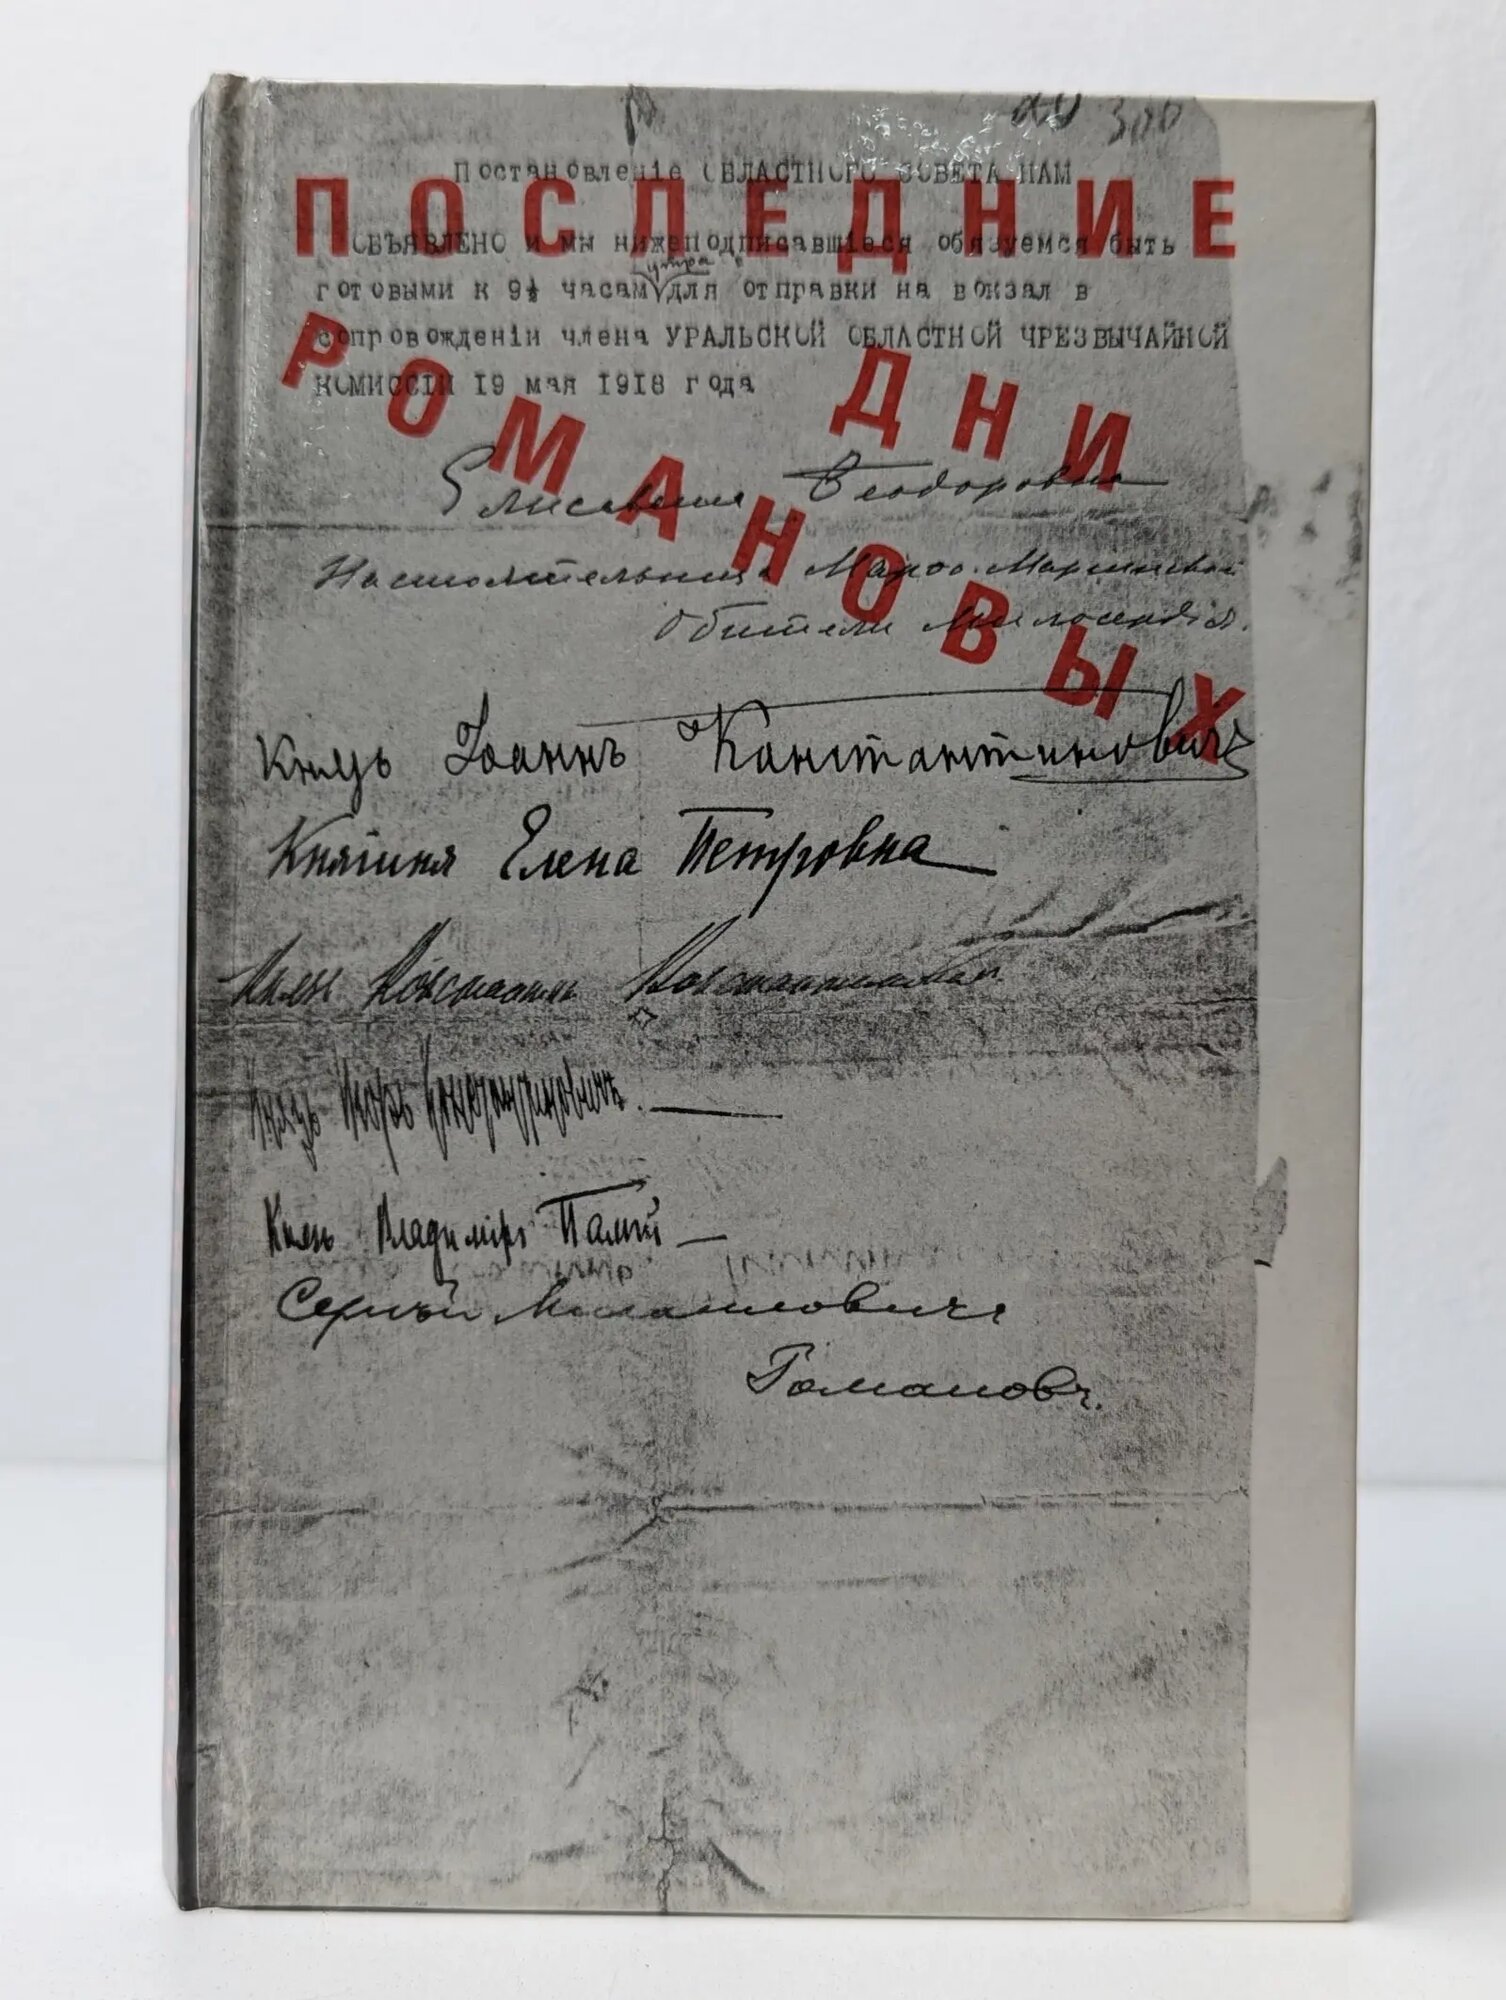 до 300
Постановленіе ОБЛАСТНОГО СОВЕТА НАМ
ПОСЛЕДНИЕ
ОБЪЯВЛЕНО и мы нижеподписавшіеся обязуемся быть
утра
готовыми к 9½ часам для отправки на вокзал в
сопровожденіи члена УРАЛЬСКОЙ ОБЛАСТНОЙ ЧРЕЗВЫЧАЙНОЙ
КОМИССІИ 19 мая 1918 года
ДНИ
РОМАНОВЫХ
Елисавета Ѳеодоровна
Настоятельница Марѳо-Маріинской
Обители Милосердія.
Князь Іоаннъ Константиновичъ
Княгиня Елена Петровна
Князь Константинъ Константинович
Князь Игорь Константиновичъ.
Князь Владиміръ Палѣй
Сергѣй Михаиловичъ
Романовъ.